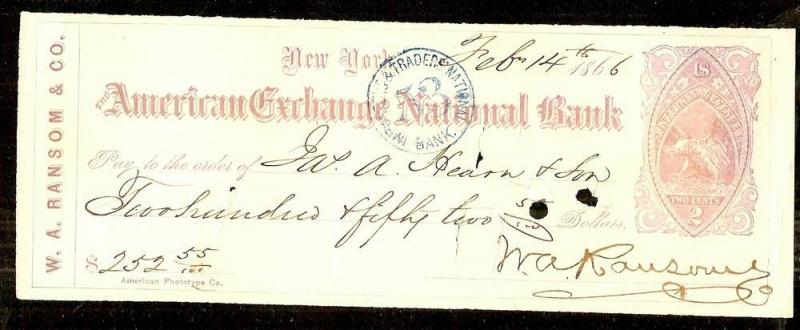 W. A. RANSOM & CO.
New York, Feb 14th 1866
THE American Exchange National Bank
IMPORTERS & TRADERS NATIONAL BANK.
Pay to the order of Jas. A. Hearn & Son
Two hundred & fifty two 55/100 Dollars.
$252 55/100
W. A. Ransom & Co
American Phototype Co.
US
INTERNAL REVENUE
TWO CENTS
2